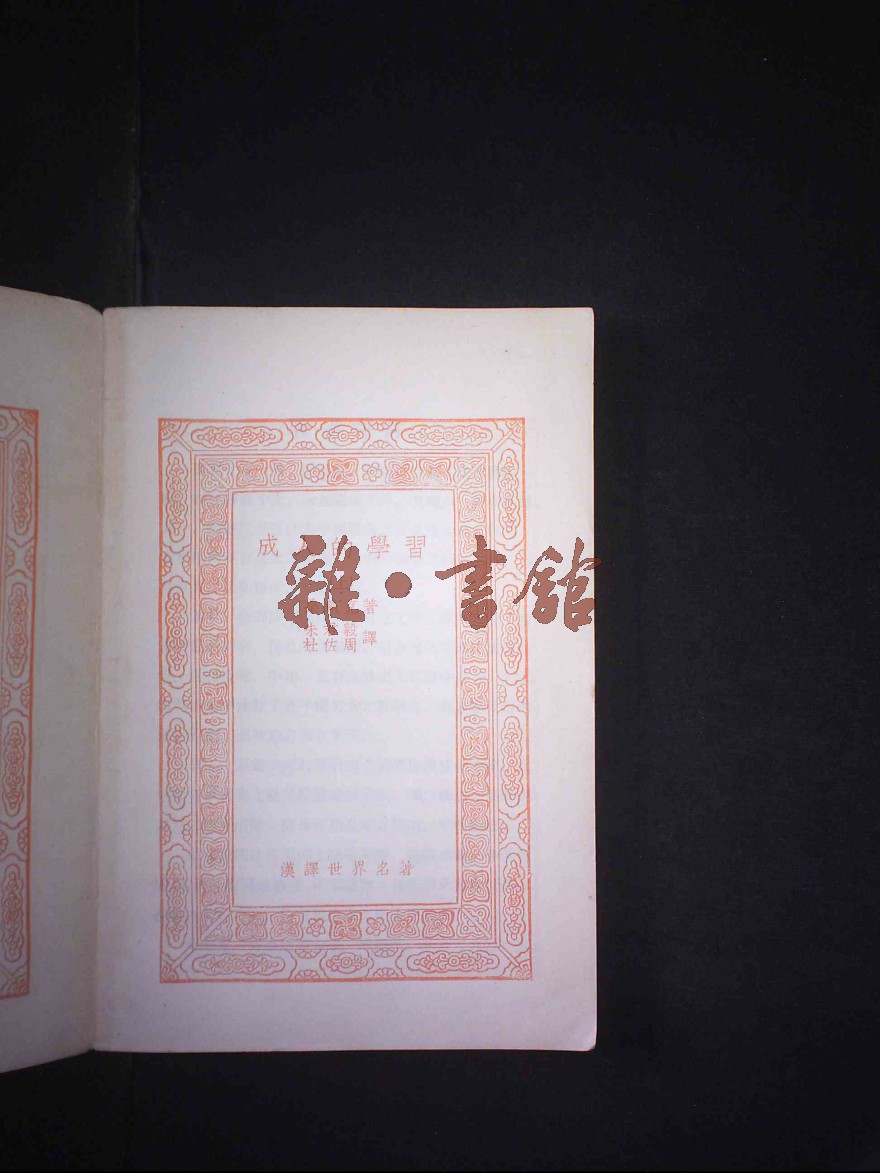 成人的學習
雜·書館
著
朱 毅
杜佐周 譯
漢譯世界名著